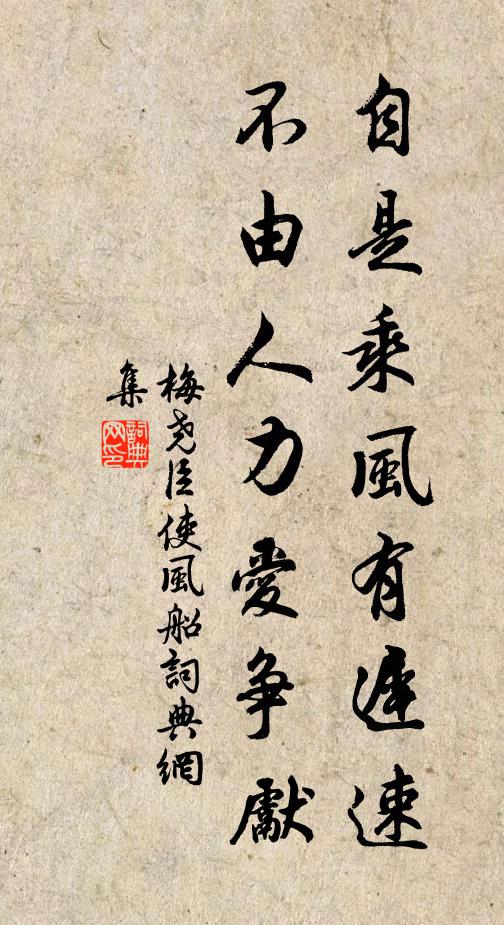 自是乘風有遲速
不由人力愛爭獻
梅堯臣使風船詞典網
集
詞典
网印